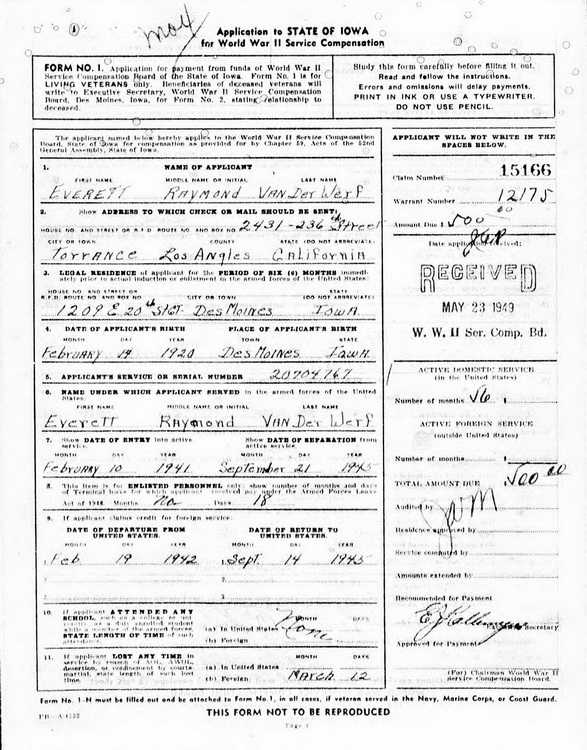 mo4
Application to STATE OF IOWA
for World War II Service Compensation
FORM NO. 1. Application for payment from funds of World War II
Service Compensation Board of the State of Iowa. Form No. 1 is for
LIVING VETERANS only. Beneficiaries of deceased veterans will
write to Executive Secretary, World War II Service Compensation
Board, Des Moines, Iowa, for Form No. 2, stating relationship to
deceased.
Study this form carefully before filling it out.
Read and follow the instructions.
Errors and omissions will delay payments.
PRINT IN INK OR USE A TYPEWRITER.
DO NOT USE PENCIL.
The applicant named below hereby applies to the World War II Service Compensation
Board, State of Iowa for compensation as provided for by Chapter 59, Acts of the 52nd
General Assembly, State of Iowa.
1. NAME OF APPLICANT
FIRST NAME MIDDLE NAME OR INITIAL LAST NAME
EVERETT RAYMOND VAN Der Werf
2. Show ADDRESS TO WHICH CHECK OR MAIL SHOULD BE SENT:
HOUSE NO. AND STREET OR R.F.D. ROUTE NO. AND BOX NO. 2431-236th Street
CITY OR TOWN COUNTY STATE (DO NOT ABBREVIATE)
Torrance Los Angles California
3. LEGAL RESIDENCE of applicant for the PERIOD OF SIX (6) MONTHS immediately
prior to actual induction or enlistment in the armed forces of the United States:
HOUSE NO. AND STREET OR
R.F.D. ROUTE NO. AND BOX NO. CITY OR TOWN STATE (DO NOT ABBREVIATE)
1209 E 20th St Ct. Des Moines Iowa
4. DATE OF APPLICANT'S BIRTH PLACE OF APPLICANT'S BIRTH
MONTH DAY YEAR TOWN STATE
February 19 1920 Des Moines Iowa.
5. APPLICANT'S SERVICE OR SERIAL NUMBER 20704767
6. NAME UNDER WHICH APPLICANT SERVED in the armed forces of the United
States.
FIRST NAME MIDDLE NAME OR INITIAL LAST NAME
Everett Raymond VAN Der Werf
7. Show DATE OF ENTRY into active service. Show DATE OF SEPARATION from active service.
MONTH DAY YEAR MONTH DAY YEAR
February 10 1941 September 21 1945
8. This item is for ENLISTED PERSONNEL only: show number of months and days
of Terminal leave for which applicant received pay under the Armed Forces Leave
Act of 1946. Months no Days 18
9. If applicant claims credit for foreign service:
DATE OF DEPARTURE FROM UNITED STATES. DATE OF RETURN TO UNITED STATES.
MONTH DAY YEAR MONTH DAY YEAR
1. Feb 19 1942 1. Sept. 14 1945
2. 2.
3. 3.
10. If applicant ATTENDED ANY
SCHOOL,
STATE LENGTH OF TIME of such
attendance.
MONTH DAYS
(a) In United States None
(b) Foreign
11. If applicant LOST ANY TIME in
service by reason of AOL, AWOL,
desertion, or confinement by courts-
martial, state length of such lost
time.
MONTH DAYS
(a) In United States
(b) Foreign March 12
APPLICANT WILL NOT WRITE IN THE
SPACES BELOW.
Claim Number 15166
Warrant Number 12175
Amount Due $ 500 00
Date application received:
RECEIVED
MAY 23 1949
W. W. II Ser. Comp. Bd.
ACTIVE DOMESTIC SERVICE
(in the United States)
Number of months
ACTIVE FOREIGN SERVICE
(outside United States)
Number of months
TOTAL AMOUNT DUE 500 00
Audited by
Residence approved by
Service computed by
Amounts extended by
Recommended for Payment
Secretary
Approved for Payment:
(For) Chairman World War II
Service Compensation Board.
Form No. 1-N must be filled out and be attached to Form No. 1, in all cases, if veteran served in the Navy, Marine Corps, or Coast Guard.
THIS FORM NOT TO BE REPRODUCED
Page 1